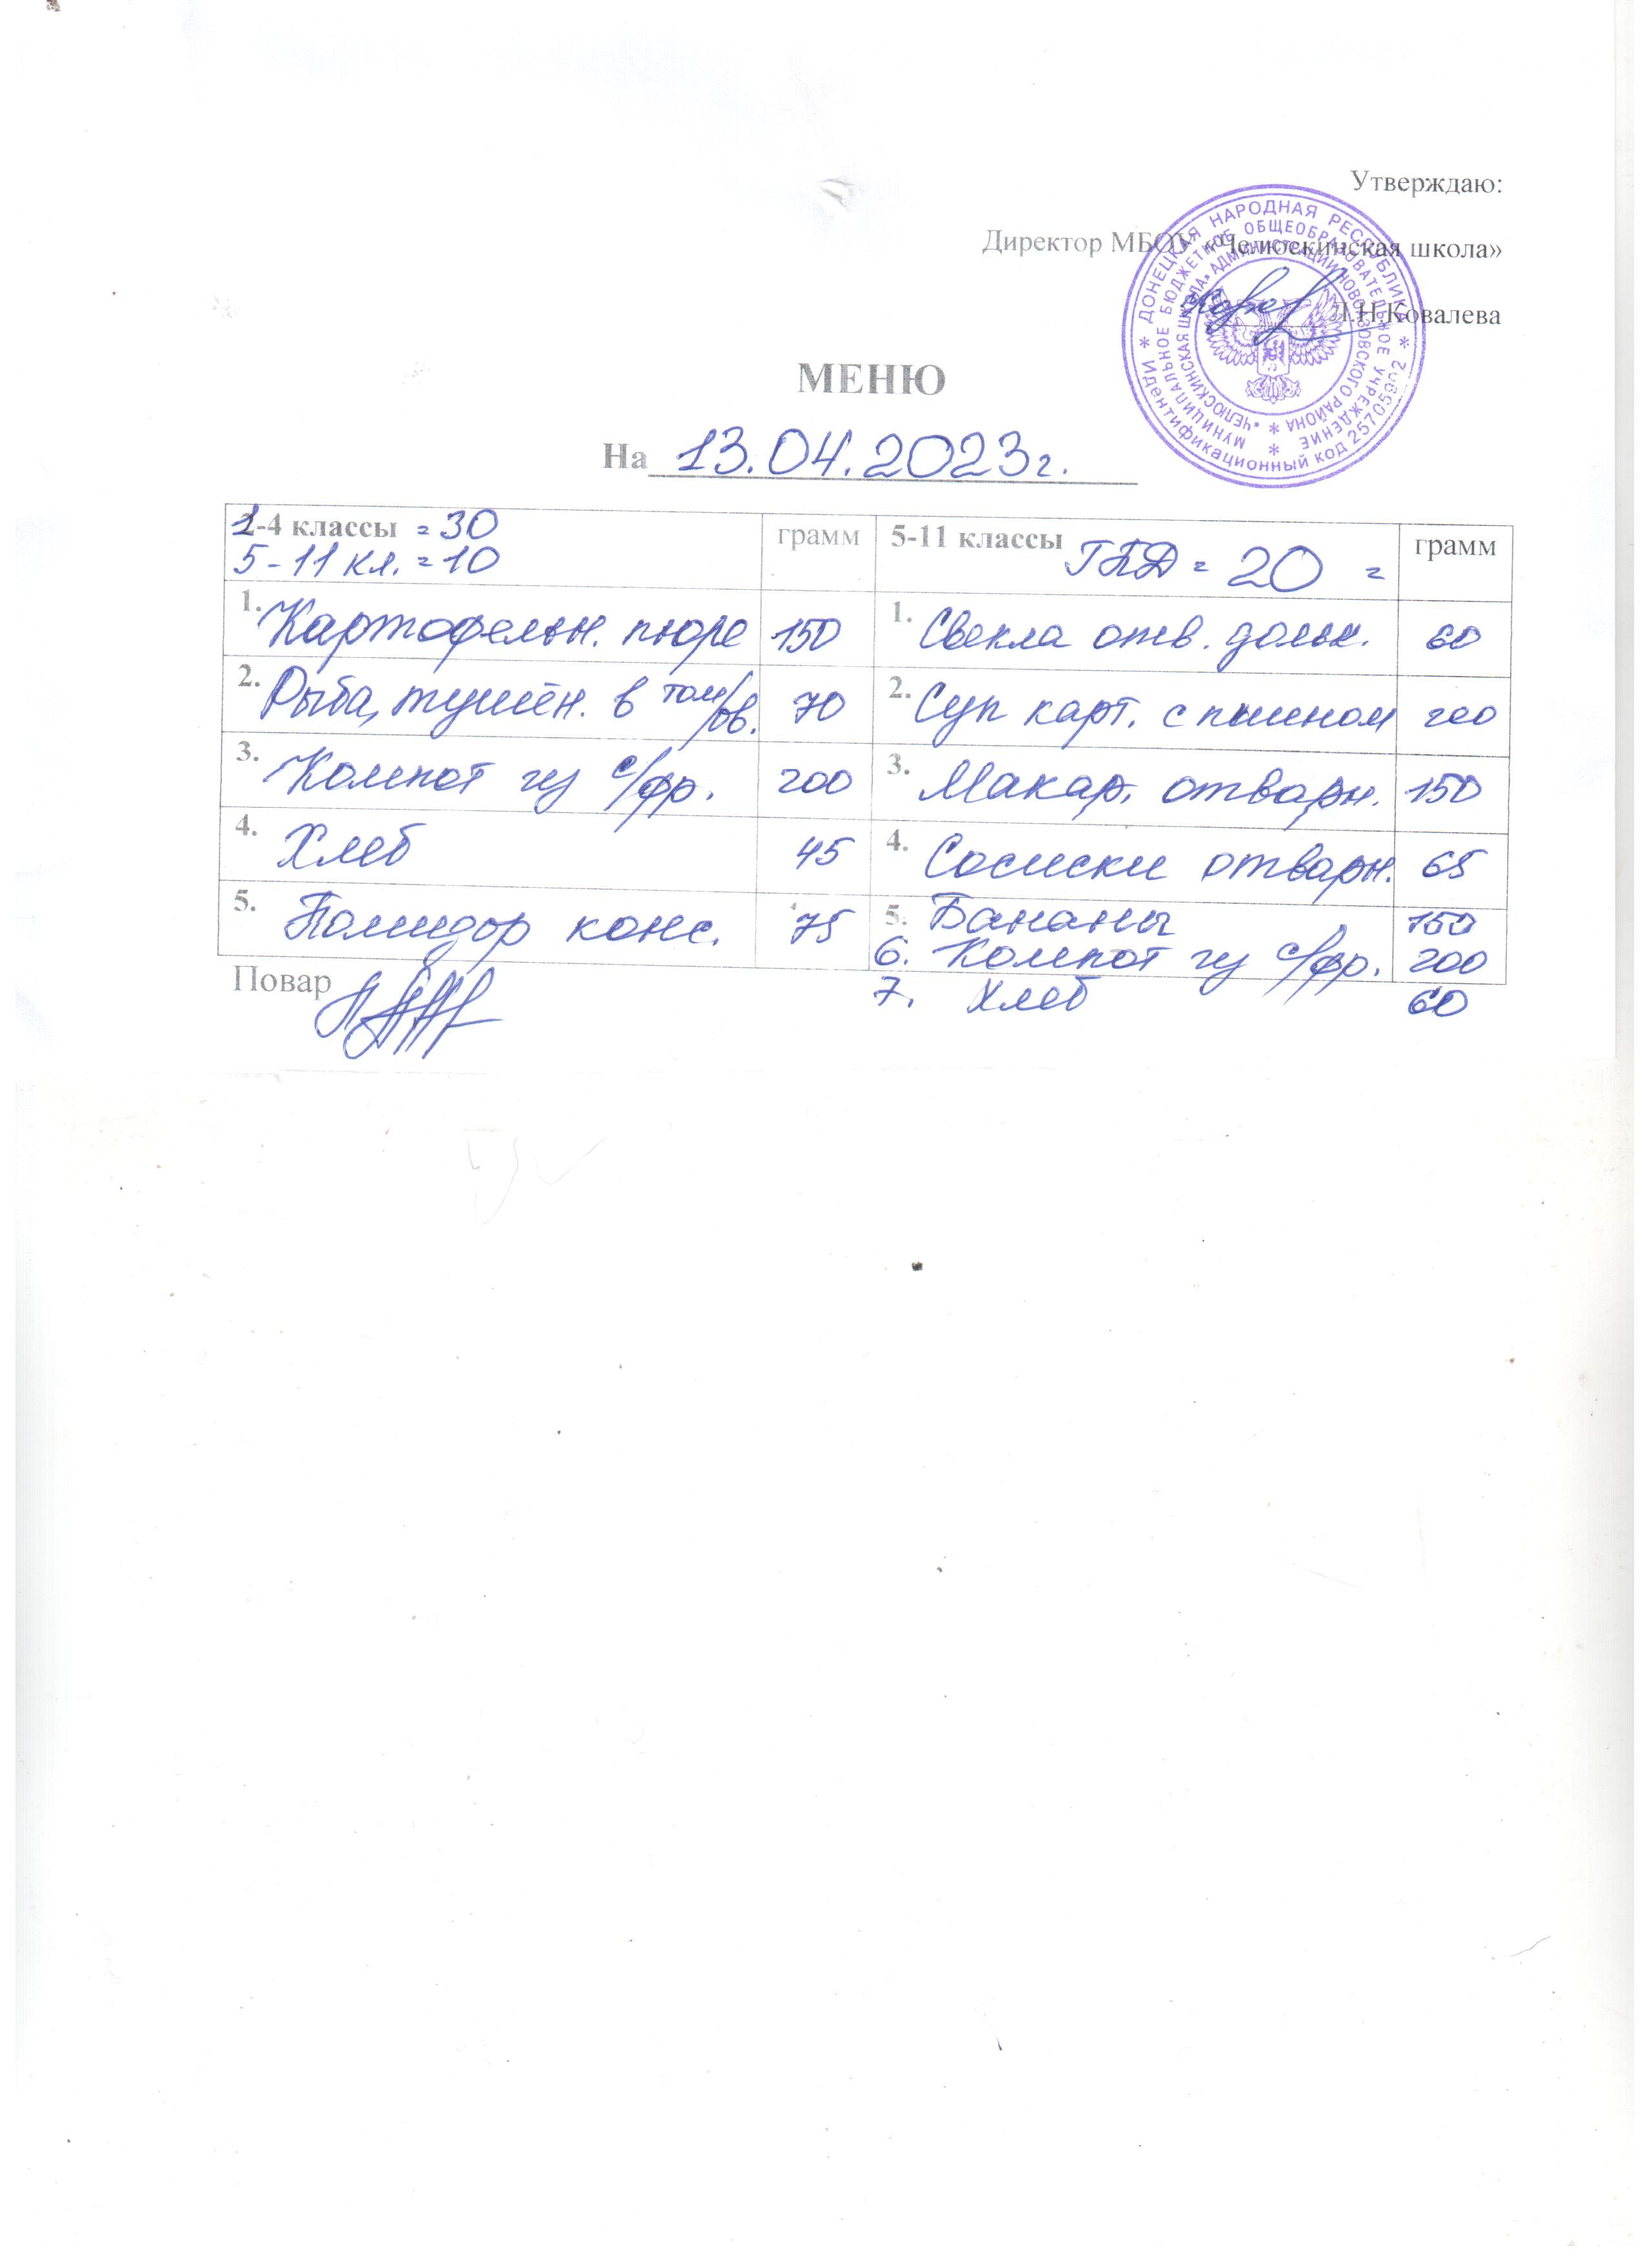 Утверждаю:
Директор МБОУ «Челюскинская школа»
Л.Н.Ковалева
* ДОНЕЦКАЯ НАРОДНАЯ РЕСПУБЛИКА *
Идентификационный код
МУНИЦИПАЛЬНОЕ БЮДЖЕТНОЕ ОБЩЕОБРАЗОВАТЕЛЬНОЕ УЧРЕЖДЕНИЕ *
«ЧЕЛЮСКИНСКАЯ ШКОЛА» АДМИНИСТРАЦИИ НОВОАЗОВСКОГО РАЙОНА *
МЕНЮ
На 13.04.2023г.
1-4 классы = 30
5-11 кл. = 10
грамм
5-11 классы ГПД = 20 =
грамм
1. Картофельн. пюре 150
1. Свекла отв. дольк. 60
2. Рыба, тушён. в том/ов. 70
2. Суп карт. с пшеном 200
3. Компот из с/фр. 200
3. Макар. отварн. 150
4. Хлеб 45
4. Сосиски отварн. 65
5. Помидор конс. 75
5. Бананы 150
6. Компот из с/фр. 200
7. Хлеб 60
Повар